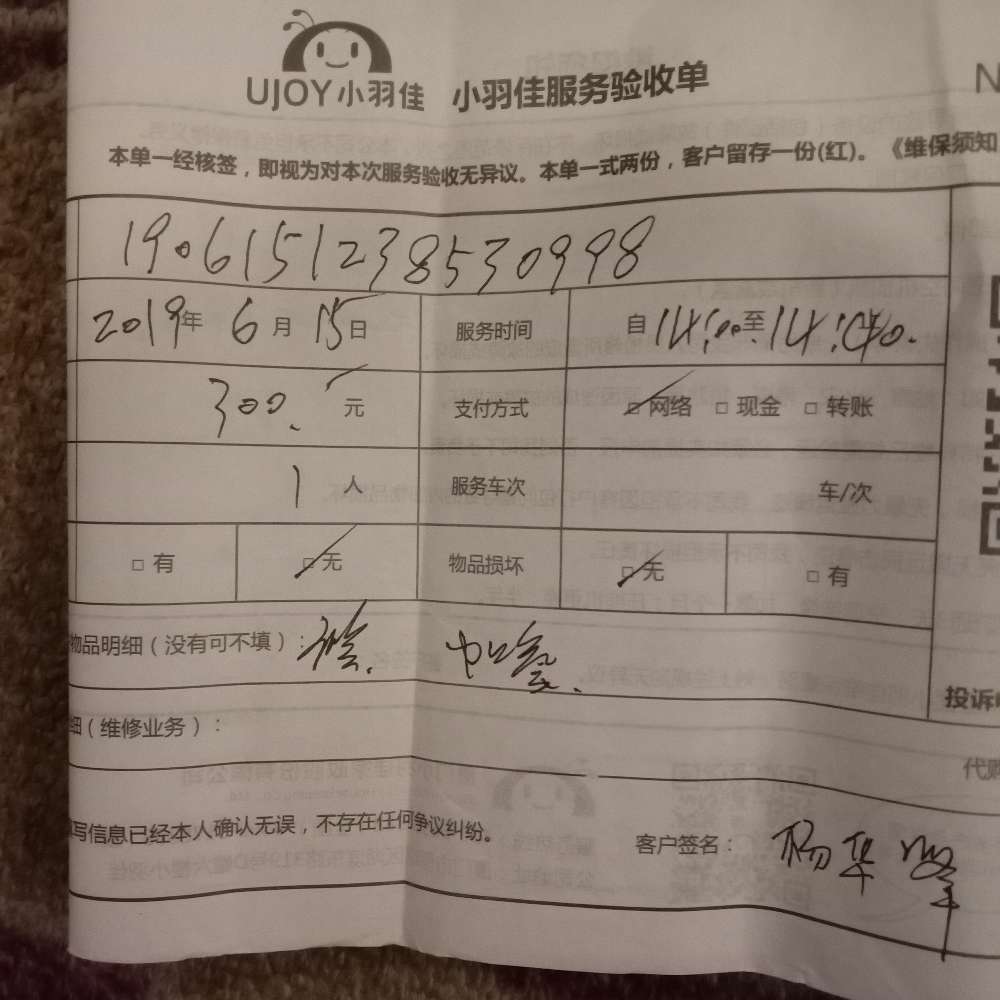 UJOY小羽佳 小羽佳服务验收单 N
本单一经核签，即视为对本次服务验收无异议。本单一式两份，客户留存一份(红)。《维保须知
190615123853099​8
2019年 6月 15日 服务时间 自14:00至14:40.
300. 元 支付方式 □网络 □现金 □转账
1 人 服务车次 车/次
□有 □无 物品损坏 □无 □有
物品明细（没有可不填）：
投诉
细（维修业务）：
代购
写信息已经本人确认无误，不存在任何争议纠纷。
客户签名： 杨华